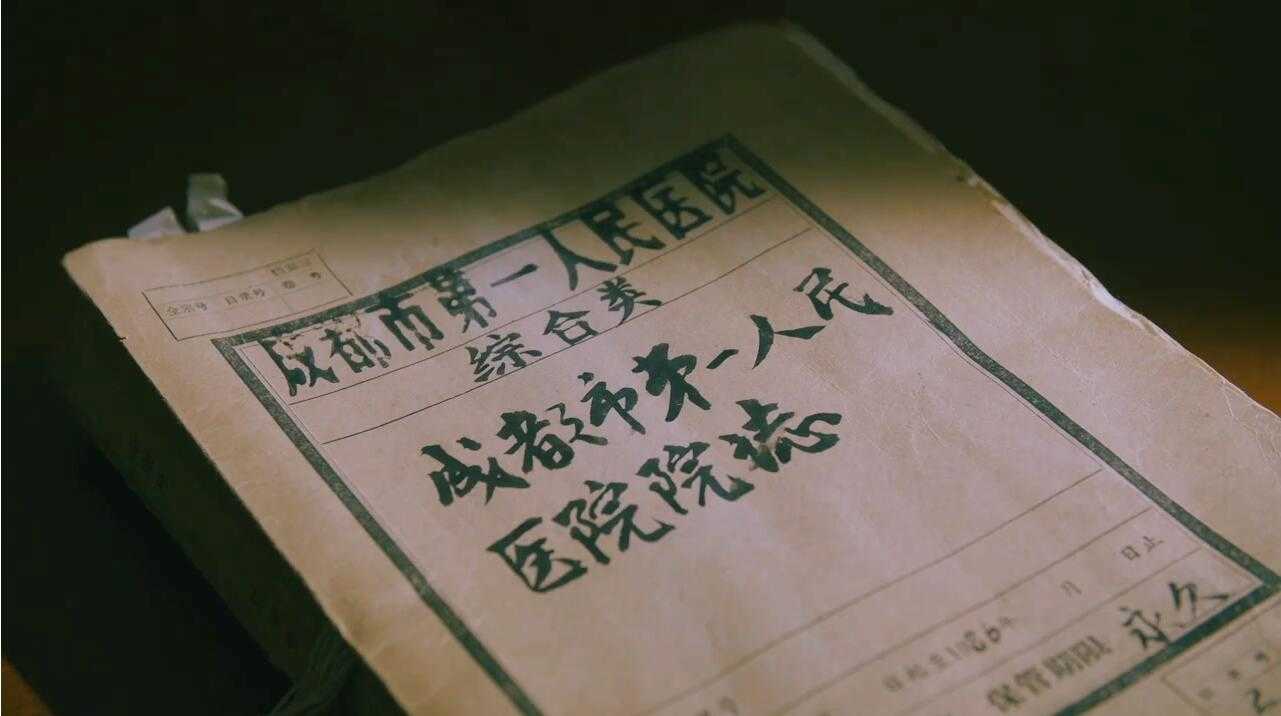 档案馆
全宗号 目录号 卷号
成都市第一人民医院
综合类
成都市第一人民
医院院誌
月 日止
自起至1986年
保管期限 永久